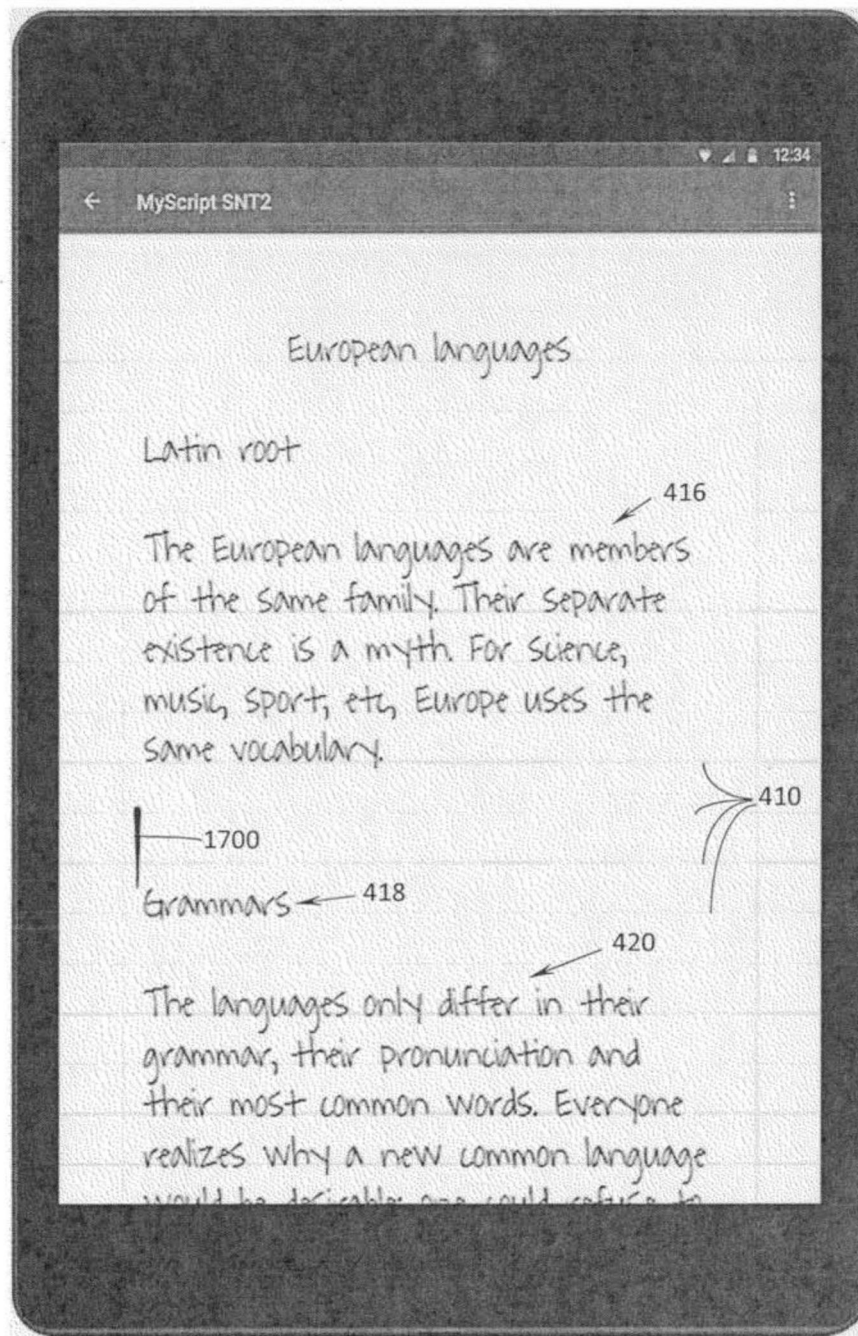 12:34
← MyScript SNT2
European languages
Latin root
416
The European languages are members
of the same family. Their separate
existence is a myth. For science,
music, sport, etc, Europe uses the
same vocabulary.
410
1700
Grammars
418
420
The languages only differ in their
grammar, their pronunciation and
their most common words. Everyone
realizes why a new common language
would be desirable: one could refuse to